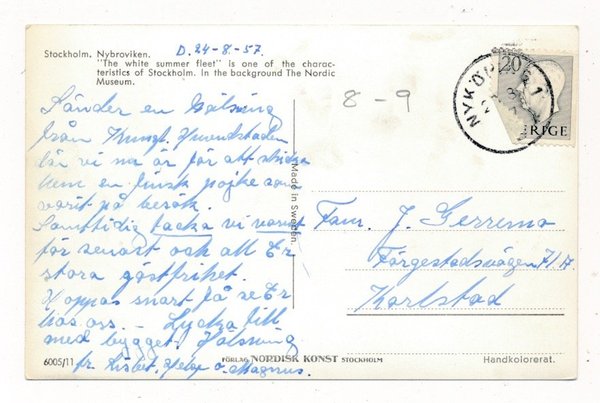 Stockholm. Nybroviken.
"The white summer fleet" is one of the charac-
teristics of Stockholm. In the background The Nordic
Museum.
D. 24-8-57.
8-9
NYKÖPING 1
20
SVERIGE
Sänder en Hälsning
från Kungl. Huvudstaden
där vi nu är för att skicka
hem en finsk pojke som
varit på besök.
Samtidigt tacka vi varmt
för senast och all Er
stora gästfrihet.
Hoppas snart få se Er
hos oss. - Lycka till
med bygget! Hälsning
fr. Lisbet, Helge o. Magnus.
Made in Sweden.
Fam. J.
Färgestadsvägen 71 A
Karlstad
6005/11
FÖRLAG NORDISK KONST STOCKHOLM
Handkolorerat.